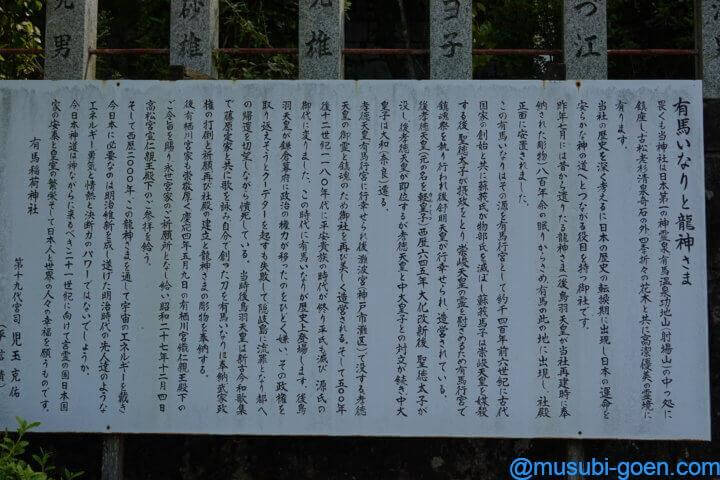 有馬いなりと龍神さま
畏くも当神社は日本第一の神霊泉有馬温泉功地山(射場山)の中っ処に
鎮座し古松老杉清泉奇石の外四季折々の花木と共に高潔優美の霊境に
有ります。
当社の歴史を深く考えるに日本の歴史の転換期に出現し日本の運命を
安らかな神の道へとつなげる役目を持つ御社です。
昨年七月には昔から遺りたる龍神さま(後鳥羽天皇が当社再建時に奉
納された彫物)八百年余の眠りからさめ有馬の此の地に出現し、社殿
正面に安置されました。
この有馬いなりはその源を有馬行宮として約千四百年前六世紀に古代
国家の創始と共に蘇我氏が物部氏を滅ぼし、蘇我馬子は崇峻天皇を嫁殺
する後、聖徳太子が摂政をとり、崇峻天皇の霊を慰さめるため有馬行宮で
鎮魂祭を執り行われ後舒明天皇が行幸せられ、造営されている。
後孝徳天皇(元の名を軽皇子)西歴六四五年大化改新後、聖徳太子が
没し、後孝徳天皇が即位するが孝徳天皇と中大皇子との対立が続き中大
皇子は大和(奈良)遷る。
孝徳天皇有馬行宮に行幸せられ後難波宮(神戸市灘区)で没する孝徳
天皇の御霊を鎮魂のため御社を再び美しく造営される。そして五〇〇年
後十二世紀一一八〇年代に平安貴族の時代が終り、平氏も滅び、源氏の
御代に変りました。この時代に有馬いなりが歴史上登場します。後鳥
羽天皇が鎌倉幕府に政治の権力が移ったのをひどく嫌い、その政権を
取り返えそうとクーデターを起すも失敗して隠岐島に流罪となり都へ
の帰還を切望しながら憤死している。当時後鳥羽天皇は新古今和歌集
で藤原定家と共に歌を詠み自分で創った刀を有馬いなりに奉納武家政
権の打倒を祈願再び社殿の建立と龍神さまの彫物を奉納する。
後有栖川宮家も崇敬厚く慶応四年五月九日の有栖川宮熾仁親王殿下の
ご令旨を賜り永世宮家のご祈願所となし給い昭和二十七年十二月四日
高松宮宣仁親王殿下のご参拝を給う。
そして西歴二〇〇〇年、この龍神さまを通して宇宙のエネルギーを戴き
今日本に必要なのは明治維新を成し遂げた明治時代の先人達のような
エネルギー勇気と情熱と決断力のパワーではないでしょうか。
今日本神道は神ながらに来るべき二十一世紀に向けて言霊の国日本国
家の安泰と皇室の繁栄そして日本人と世界の人々の幸福を願うものです。
有馬稲荷神社
第十九代宮司 児玉克佑
@musubi-goen.com